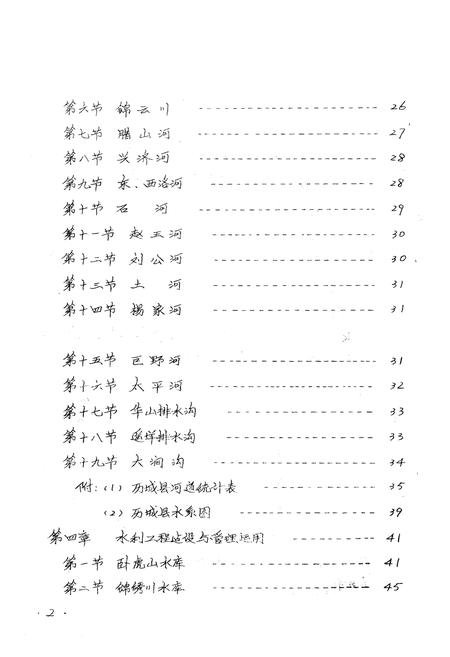 第六节 锦云川 ---------------- 26
第七节 腊山河 ---------------- 27
第八节 兴济河 ---------------- 28
第九节 东、西洛河 ---------------- 28
第十节 石 河 ---------------- 29
第十一节 赵王河 ---------------- 30
第十二节 刘公河 ---------------- 30
第十三节 土 河 ---------------- 31
第十四节 杨家河 ---------------- 31
第十五节 巨野河 ---------------- 31
第十六节 太平河 ---------------- 32
第十七节 华山排水沟 ---------------- 33
第十八节 排水沟 ---------------- 33
第十九节 大涧沟 ---------------- 34
附:(1)历城县河道统计表 ---------------- 35
(2)历城县水系图 ---------------- 39
第四章 水利工程建设与管理运用 ---------------- 41
第一节 卧虎山水库 ---------------- 41
第二节 锦绣川水库 ---------------- 45
·2·